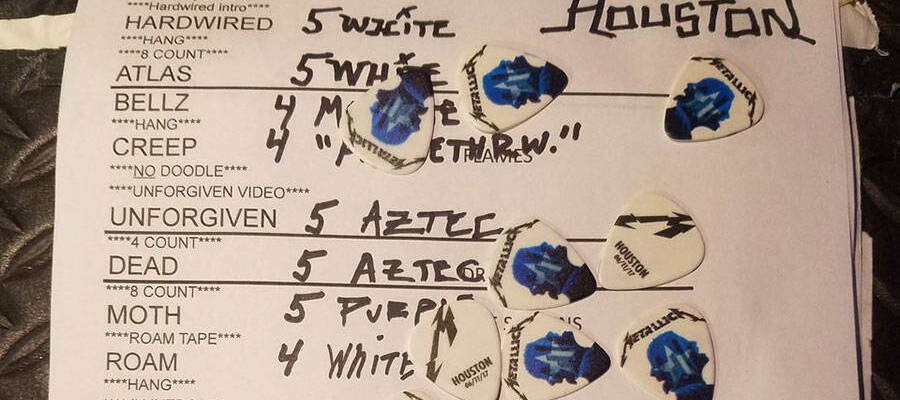 ****Hardwired intro****
HOUSTON
HARDWIRED 5 WHITE
****HANG****
****8 COUNT****
ATLAS 5 WHITE
METALLICA
METALLICA
BELLZ 4
****HANG****
CREEP 4 ETH.R.W."
METALLICA
****NO DOODLE****
****UNFORGIVEN VIDEO****
UNFORGIVEN 5 AZTEC
****4 COUNT****
METALLICA
HOUSTON
06/11/17
DEAD 5 AZTEC OR
****8 COUNT****
MOTH 5 PURPLE
****ROAM TAPE****
METALLICA
METALLICA
ROAM 4 White
HOUSTON
06/11/17
****HANG****